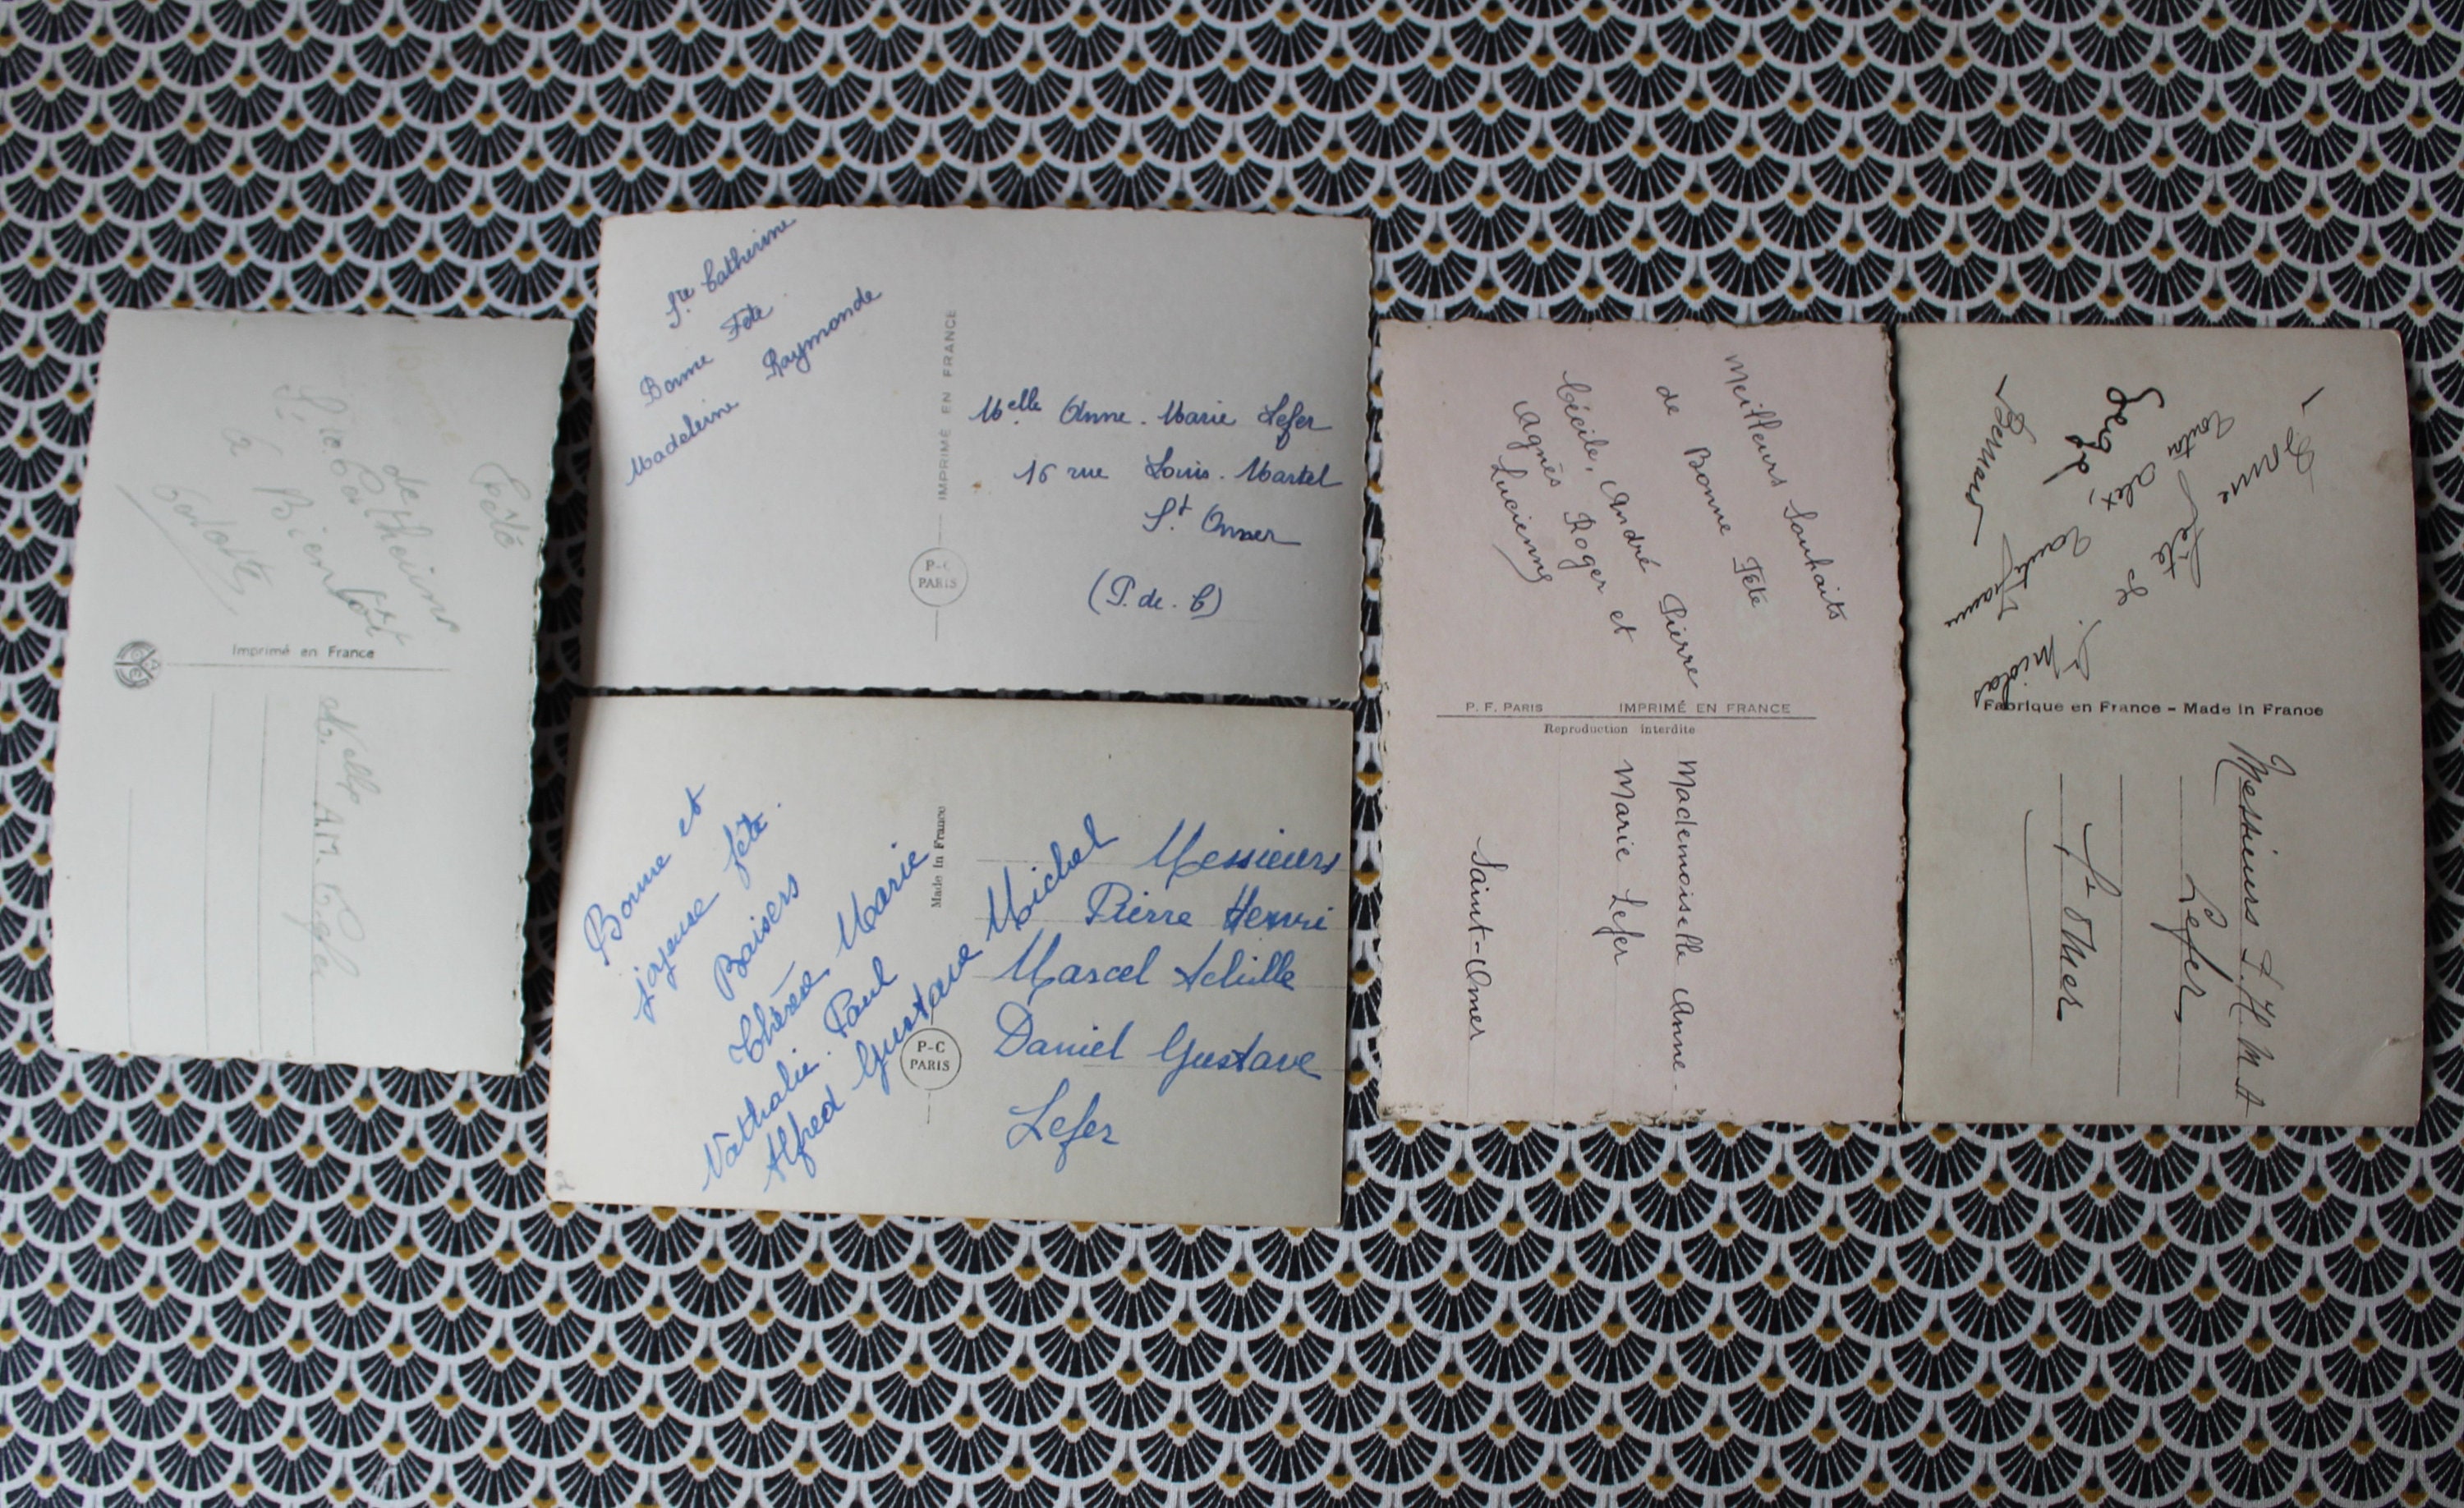 Fête
de
Ste. Catherine
à Bientôt
Imprimé en France
Melle
A.M. Lefer
Ste Catherine
Bonne Fête
Madeleine Raymonde
IMPRIMÉ EN FRANCE
P-C
PARIS
Melle Anne-Marie Lefer
16 rue Louis-Martel
St Omer
(P. de. C)
Bonne et
joyeuse fête.
Baisers
Thérèse Marie
Nathalie. Paul
Alfred Gustave Michel
Made in France
P-C
PARIS
Messieurs
Pierre Henri
Marcel Achille
Daniel Gustave
Lefer
Meilleurs Souhaits
de Bonne Fête
Cécile, André Pierre
Agnès Roger et
Lucienne
P. F. PARIS IMPRIMÉ EN FRANCE
Reproduction interdite
Mademoiselle Anne-
Marie Lefer
Saint-Omer
Bonne
Fête de
St Nicolas
Tonton Alex,
Serge
Fabrique en France - Made in France
Messieurs P. H. M A
Lefer
St Omer